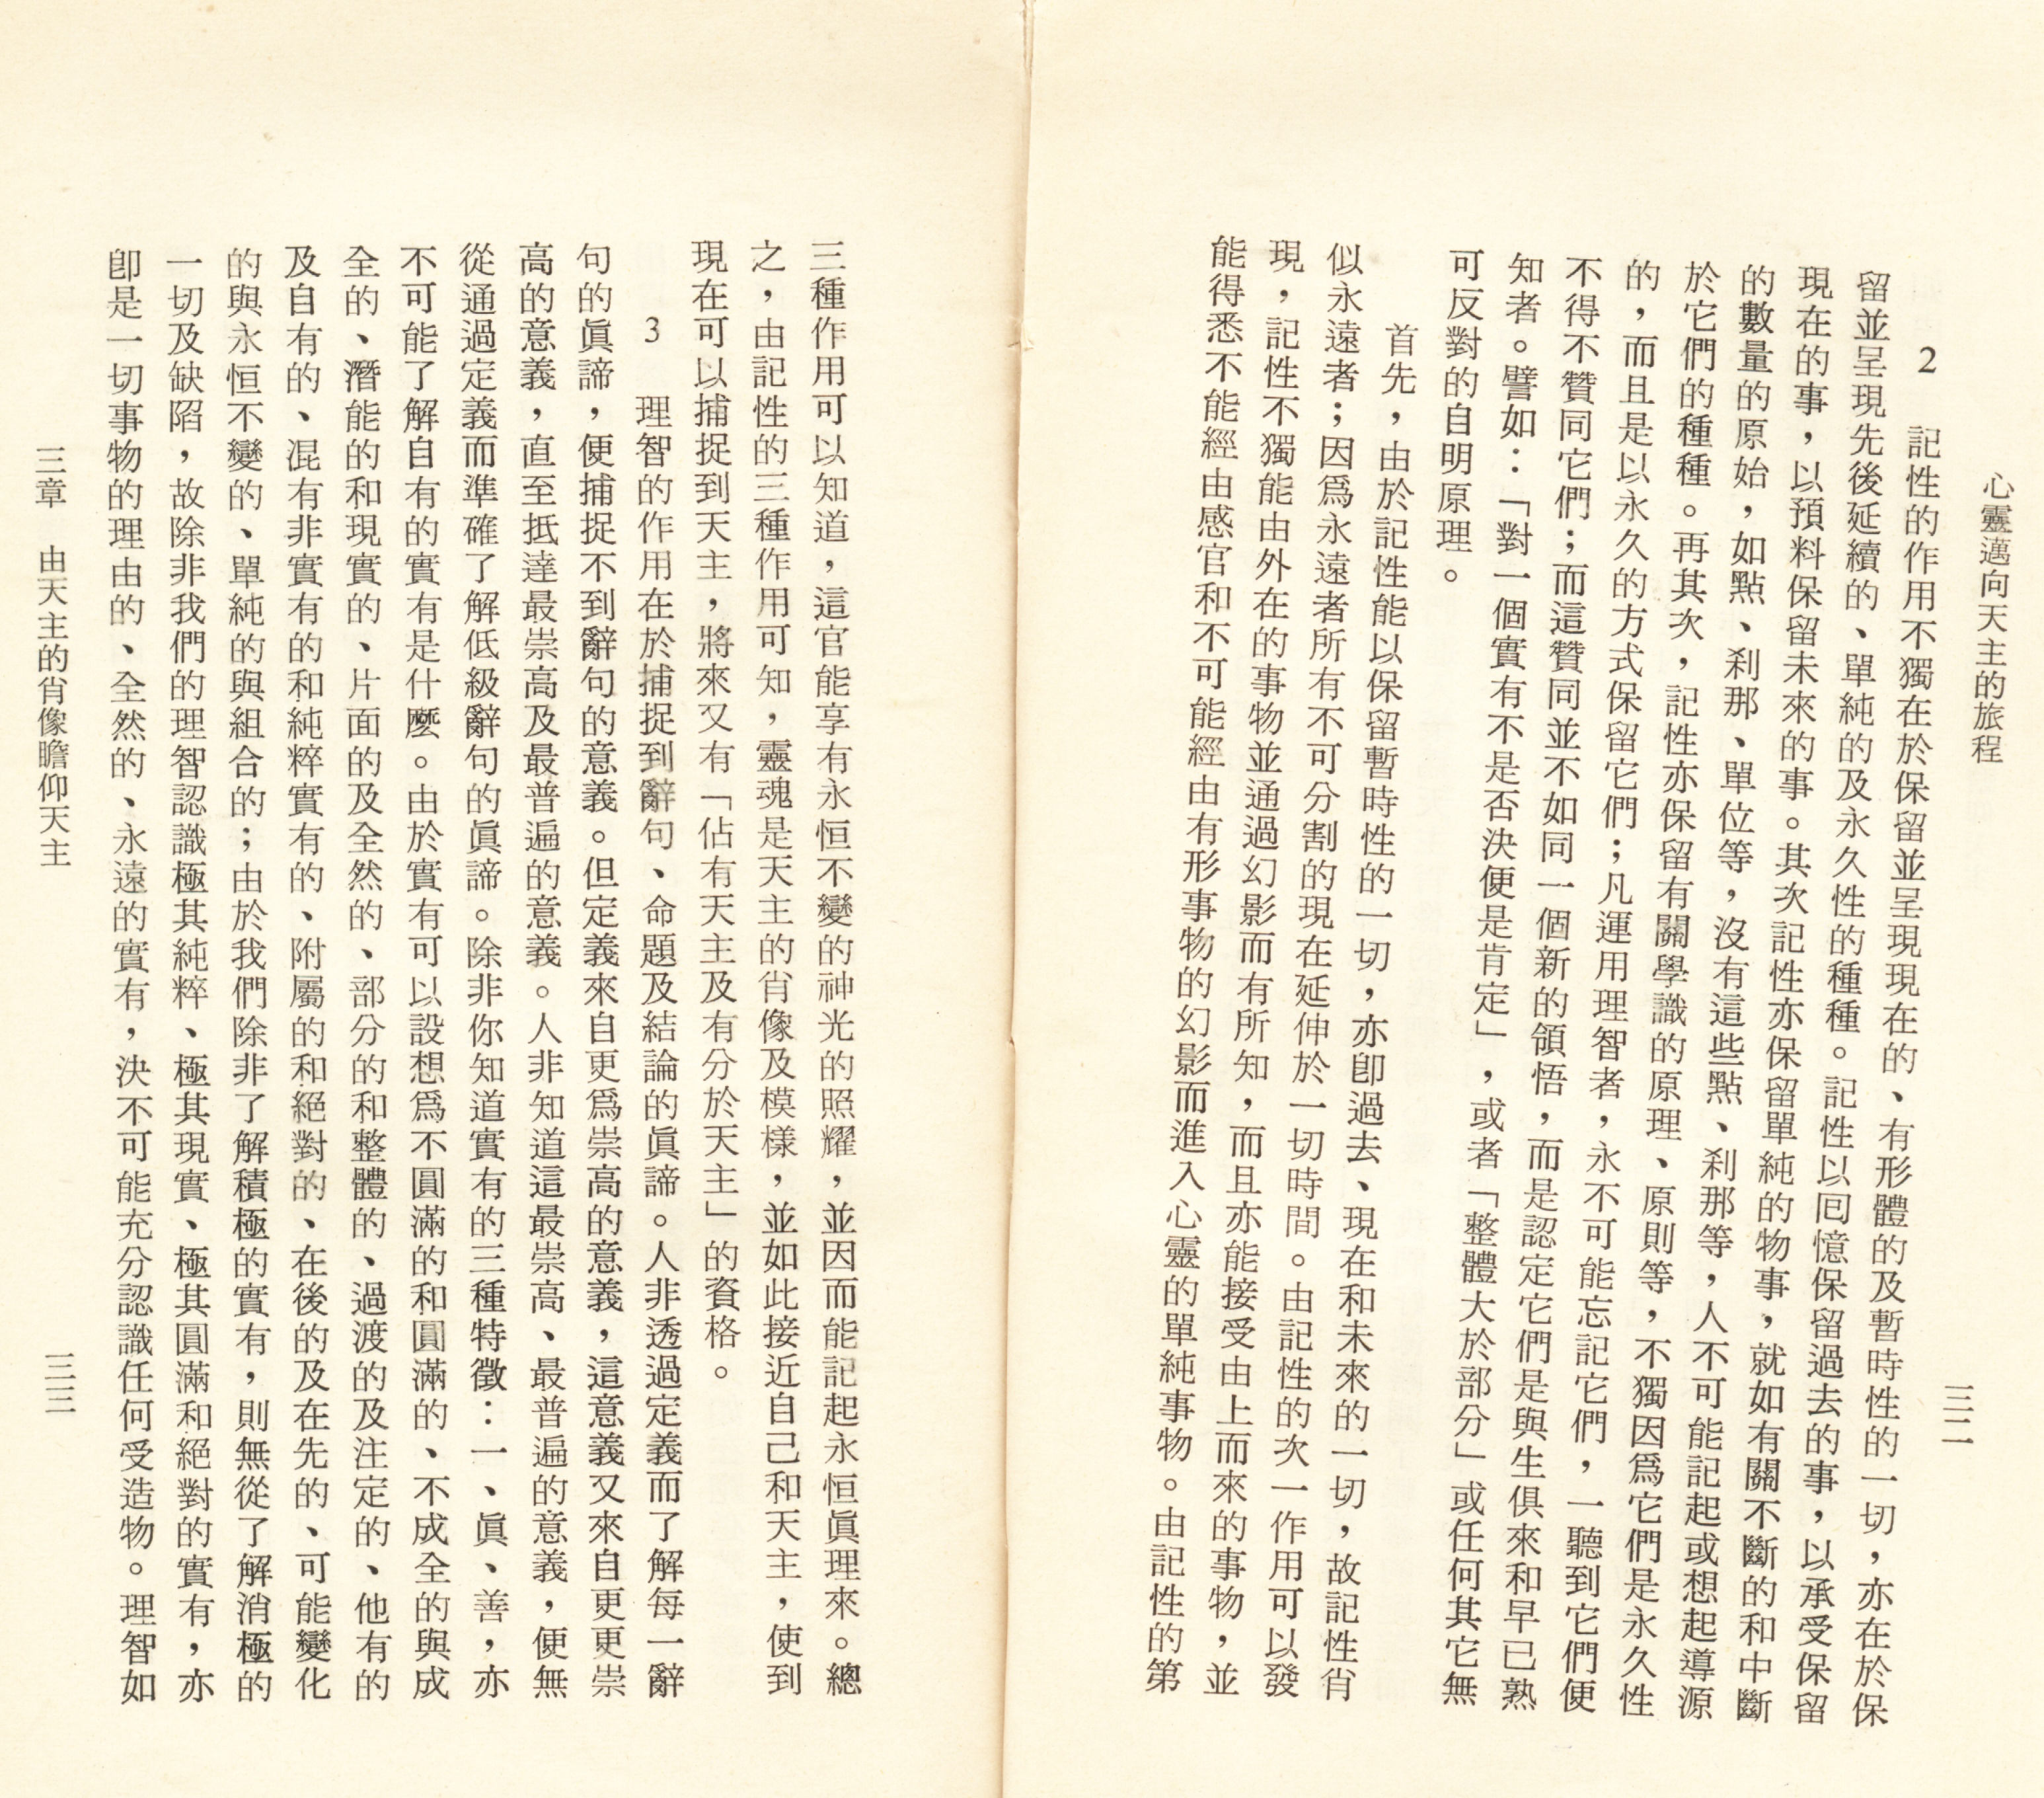 心靈邁向天主的旅程
三二
2 記性的作用不獨在於保留並呈現現在的、有形體的及暫時性的一切，亦在於保
留並呈現先後延續的、單純的及永久性的種種。記性以回憶保留過去的事，以承受保留
現在的事，以預料保留未來的事。其次記性亦保留單純的物事，就如有關不斷的和中斷
的數量的原始，如點、刹那、單位等，沒有這些點、刹那等，人不可能記起或想起導源
於它們的種種。再其次，記性亦保留有關學識的原理、原則等，不獨因爲它們是永久性
的，而且是以永久的方式保留它們；凡運用理智者，永不可能忘記它們，一聽到它們便
不得不贊同它們；而這贊同並不如同一個新的領悟，而是認定它們是與生俱來和早已熟
知者。譬如：「對一個實有不是否決便是肯定」，或者「整體大於部分」或任何其它無
可反對的自明原理。
首先，由於記性能以保留暫時性的一切，亦卽過去、現在和未來的一切，故記性肖
似永遠者；因爲永遠者所有不可分割的現在延伸於一切時間。由記性的次一作用可以發
現，記性不獨能由外在的事物並通過幻影而有所知，而且亦能接受由上而來的事物，並
能得悉不能經由感官和不可能經由有形事物的幻影而進入心靈的單純事物。由記性的第
三種作用可以知道，這官能享有永恒不變的神光的照耀，並因而能記起永恒眞理來。總
之，由記性的三種作用可知，靈魂是天主的肖像及模樣，並如此接近自己和天主，使到
現在可以捕捉到天主，將來又有「佔有天主及有分於天主」的資格。
3 理智的作用在於捕捉到辭句、命題及結論的眞諦。人非透過定義而了解每一辭
句的眞諦，便捕捉不到辭句的意義。但定義來自更爲崇高的意義，這意義又來自更更崇
高的意義，直至抵達最崇高及最普遍的意義。人非知道這最崇高、最普遍的意義，便無
從通過定義而準確了解低級辭句的眞諦。除非你知道實有的三種特徵：一、眞、善，亦
不可能了解自有的實有是什麼。由於實有可以設想爲不圓滿的和圓滿的、不成全的與成
全的、潛能的和現實的、片面的及全然的、部分的和整體的、過渡的及注定的、他有的
及自有的、混有非實有的和純粹實有的、附屬的和絕對的、在後的及在先的、可能變化
的與永恒不變的、單純的與組合的；由於我們除非了解積極的實有，則無從了解消極的
一切及缺陷，故除非我們的理智認識極其純粹、極其現實、極其圓滿和絕對的實有，亦
卽是一切事物的理由的、全然的、永遠的實有，決不可能充分認識任何受造物。理智如
三章 由天主的肖像瞻仰天主
三三